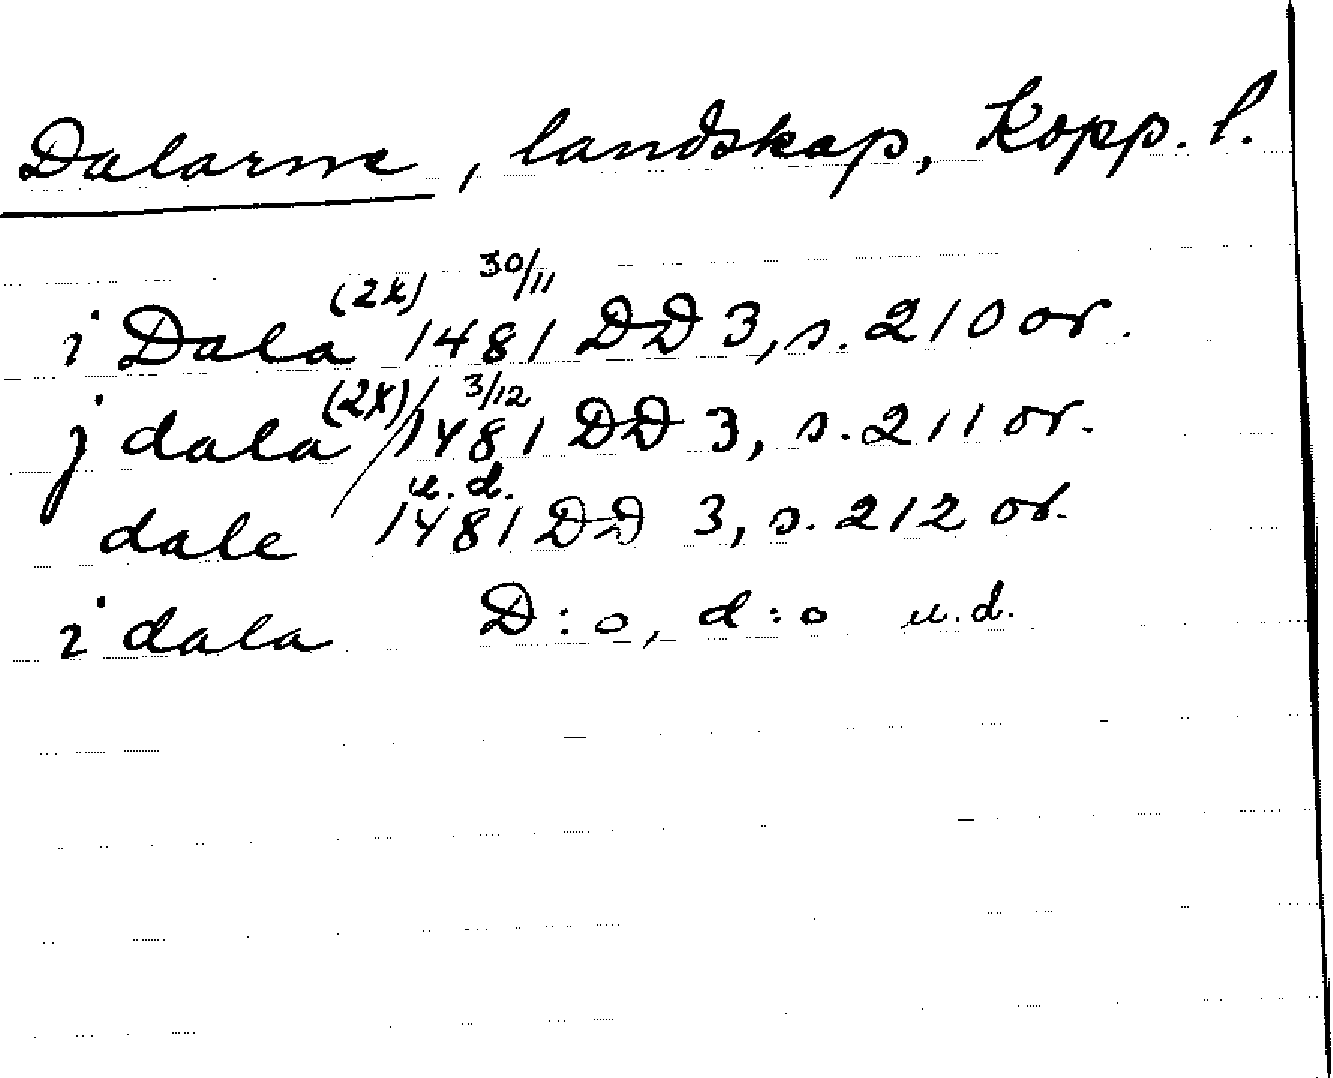 Dalarne, landskap, Kopp. l.
i Dala (2x) 30/11 1481 DD 3, s. 210 or.
j dala (2x) / 3/12 1481 DD 3, s. 211 or.
dale u.d. 1481 DD 3, s. 212 or.
i dala D:o, d:o u.d.